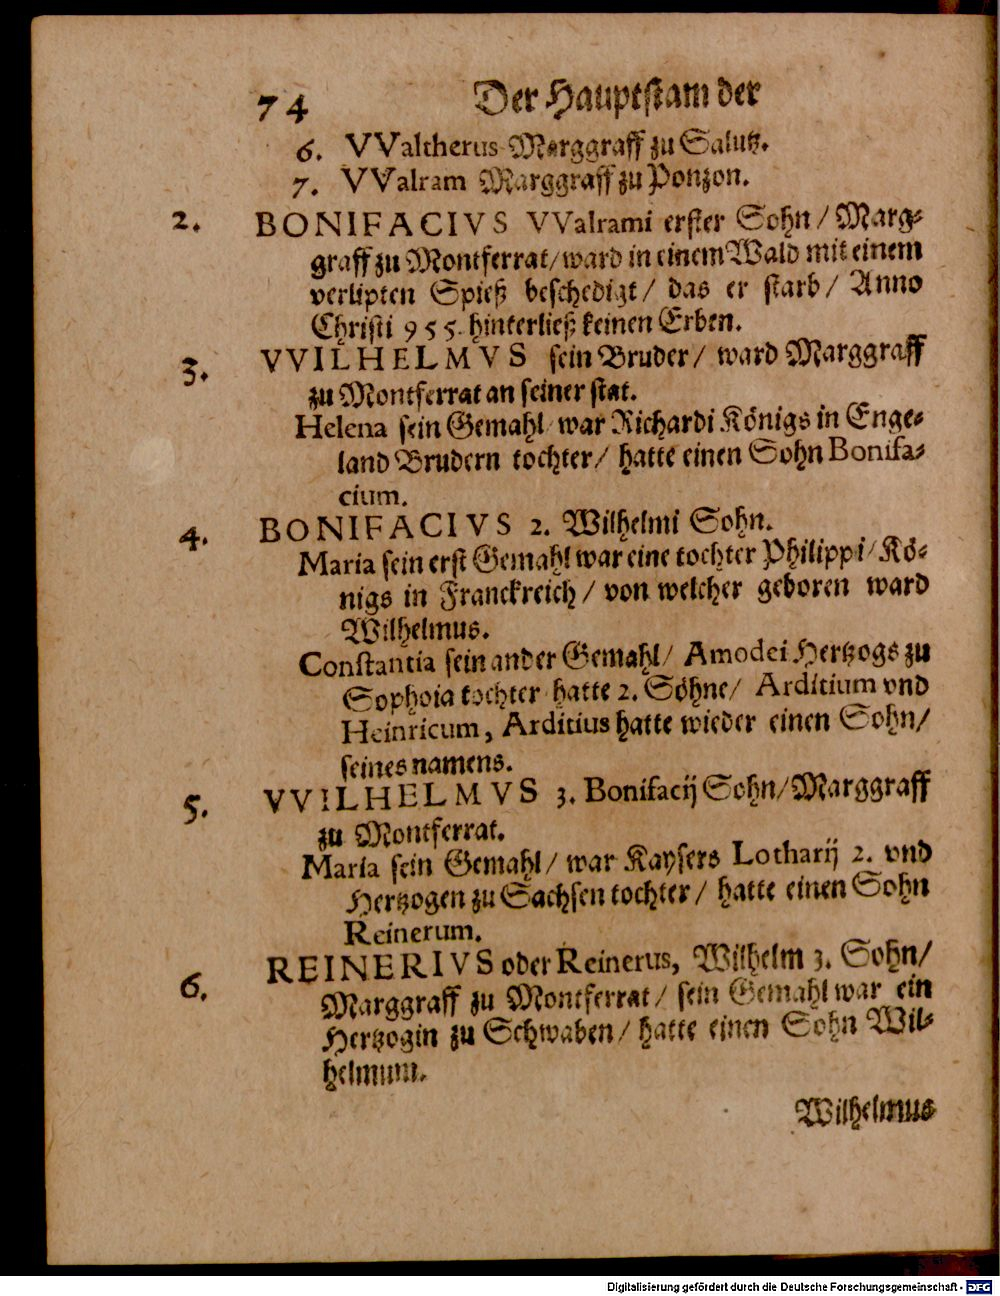 74 Der Hauptstam der
6. VValtherus Marggraff zu Salutz.
7. VValram Marggraff zu Ponzon.
2. BONIFACIVS VValrami erster Sohn / Marg⸗
graff zu Montferrat / ward in einem Wald mit einem
verlipten Spieß beschedigt / das er starb / Anno
Christi 955. hinterließ keinen Erben.
3. VVILHELMVS sein Bruder / ward Marggraff
zu Montferrat an seiner stat.
Helena sein Gemahl / war Richardi Königs in Enge⸗
land Brudern tochter / hatte einen Sohn Bonifa⸗
cium.
4. BONIFACIVS 2. Wilhelmi Sohn.
Maria sein erst Gemahl war eine tochter Philippi / Kö⸗
nigs in Franckreich / von welcher geboren ward
Wilhelmus.
Constantia sein ander Gemahl / Amodei Hertzogs zu
Sophoia tochter hatte 2. Söhne / Arditium vnd
Heinricum, Arditius hatte wieder einen Sohn /
seines namens.
5. VVILHELMVS 3. Bonifacij Sohn / Marggraff
zu Montferrat.
Maria sein Gemahl / war Kaysers Lotharij 2. vnd
Hertzogen zu Sachsen tochter / hatte einen Sohn
Reinerum.
6. REINERIVS oder Reinerus, Wilhelm 3. Sohn /
Marggraff zu Montferrat / sein Gemahl war ein
Hertzogin zu Schwaben / hatte einen Sohn Wil⸗
helmum.
Wilhelmus
Digitalisierung gefördert durch die Deutsche Forschungsgemeinschaft - DFG